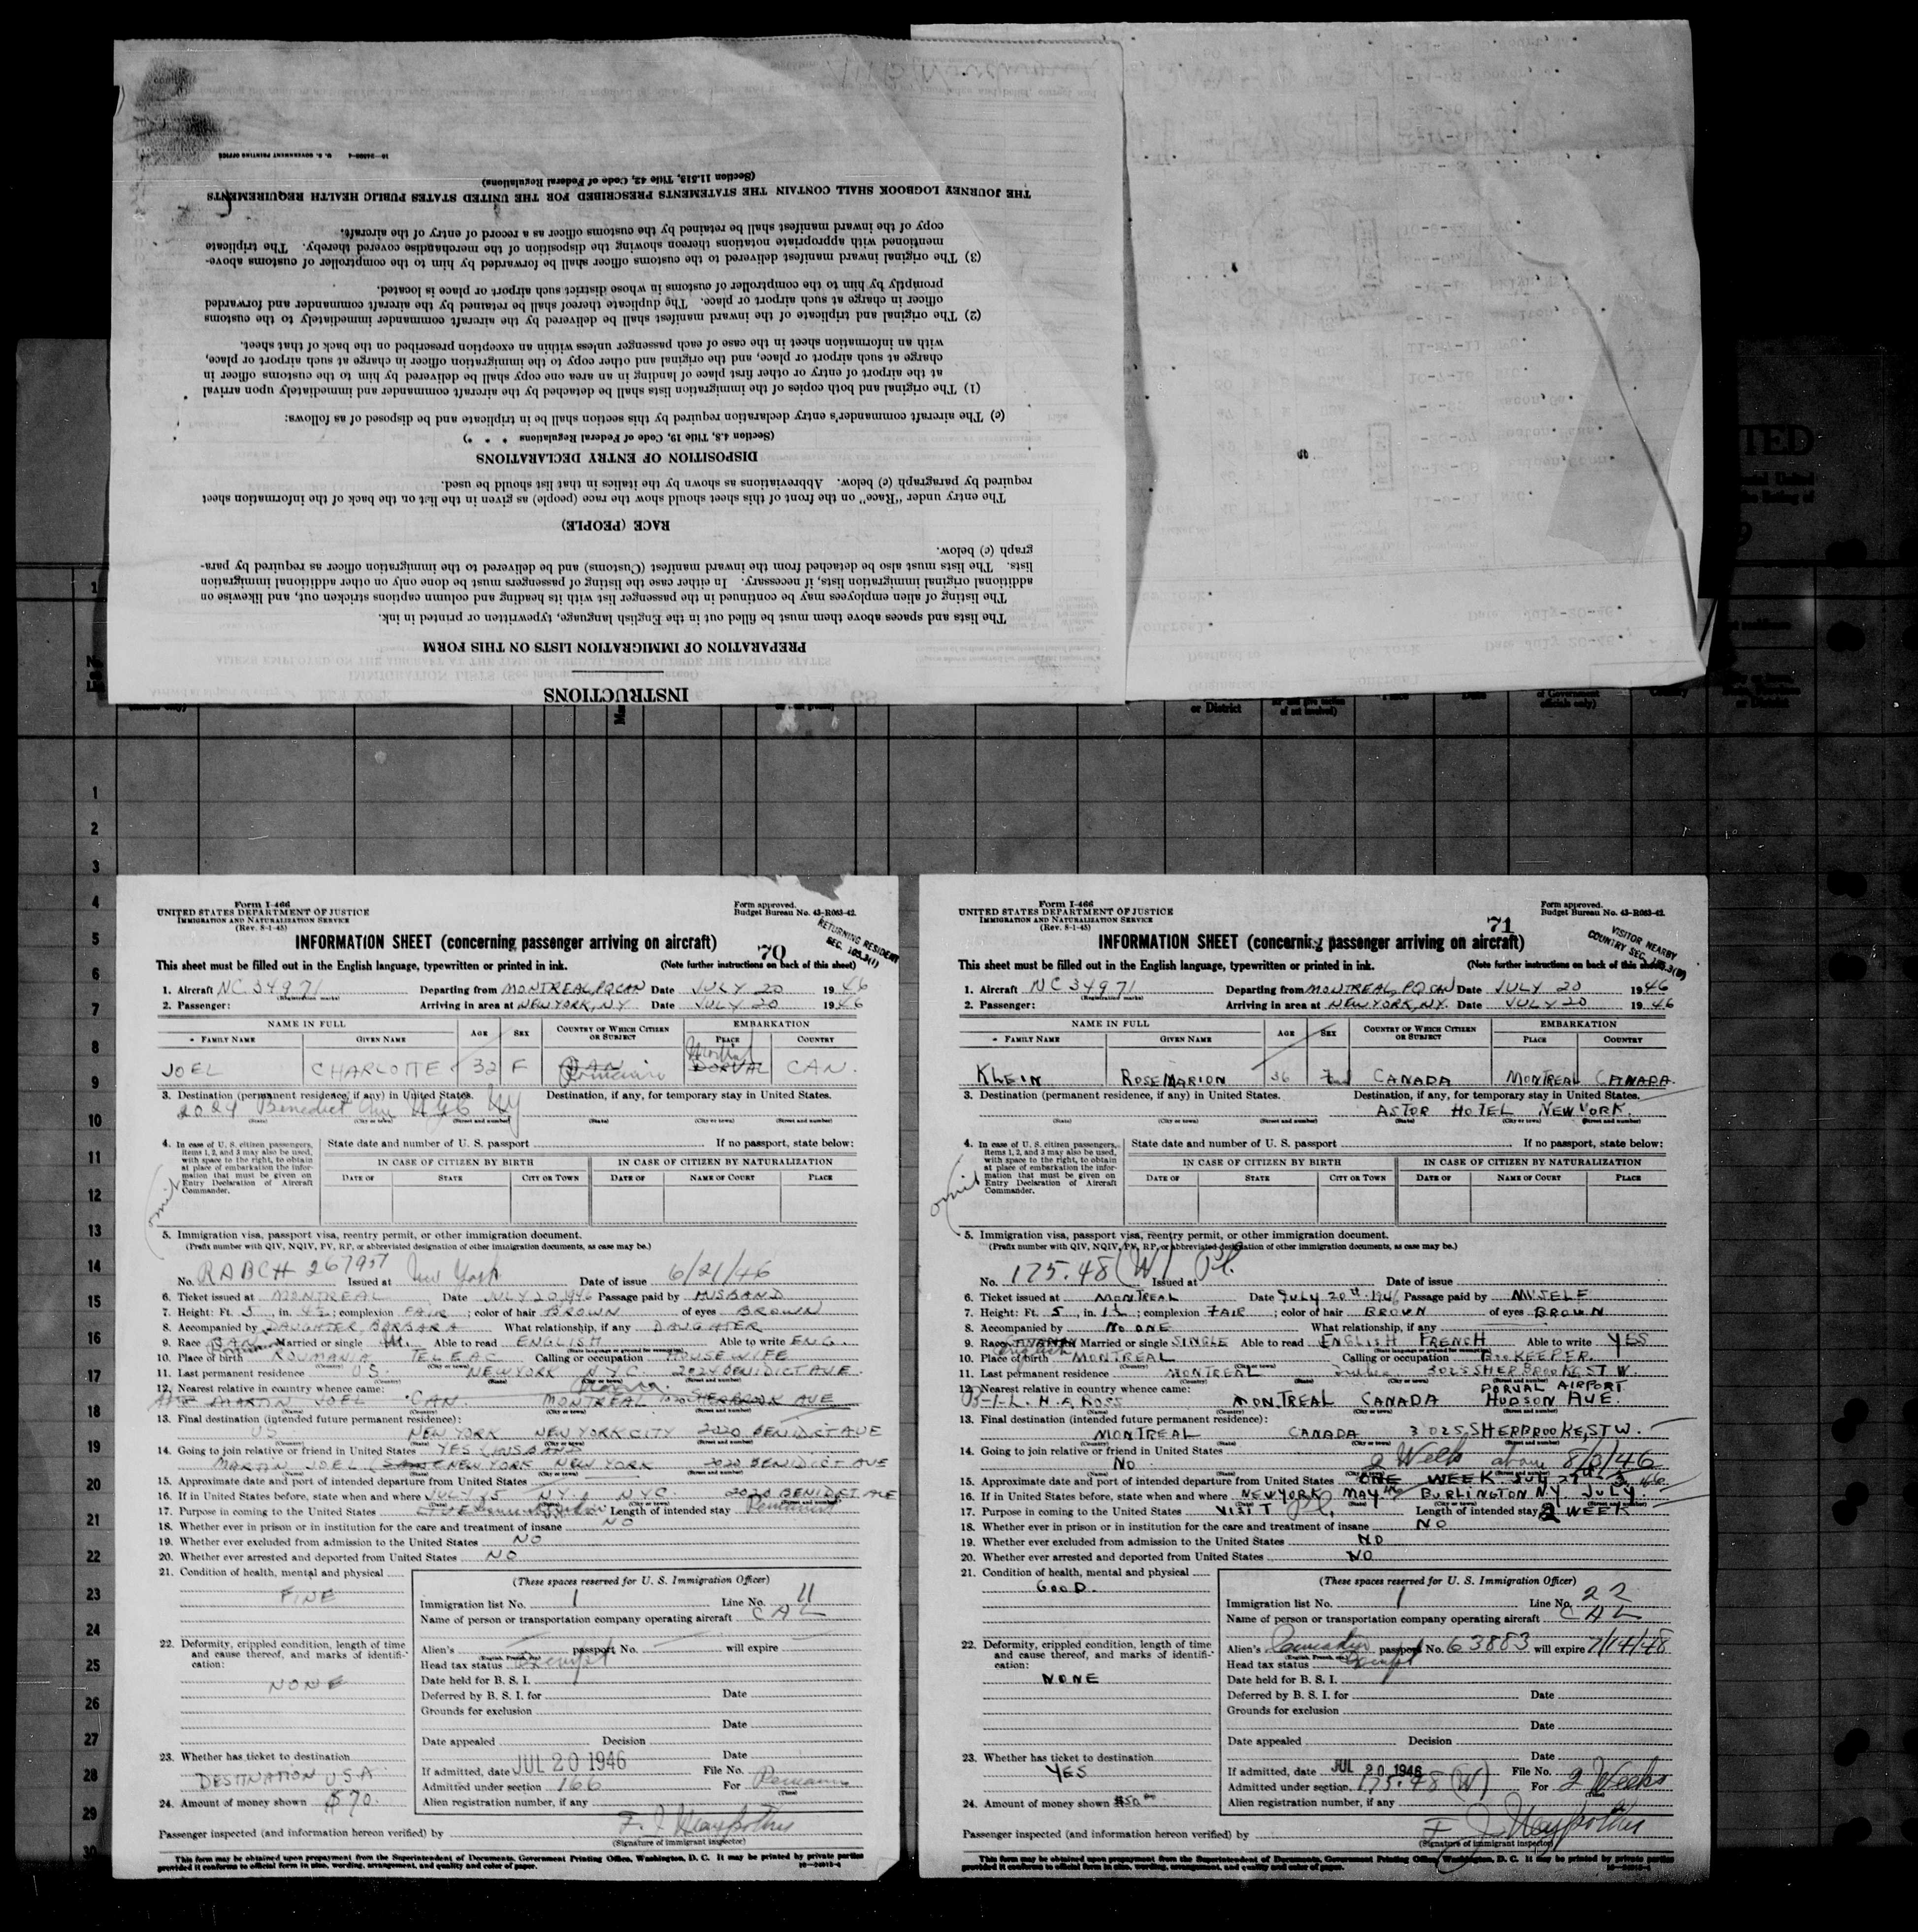 INSTRUCTIONS
PREPARATION OF IMMIGRATION LISTS ON THIS FORM
The lists and spaces above them must be filled out in the English language, typewritten or printed in ink.
The listing of alien employees may be continued in the passenger list with its heading and column captions stricken out, and likewise on
additional original immigration lists, if necessary. In either case the listing of passengers must be done only on other additional immigration
lists. The lists must also be detached from the inward manifest (Customs) and be delivered to the immigration officer as required by para-
graph (c) below.
RACE (PEOPLE)
The entry under "Race" on the front of this sheet should show the race (people) as given in the list on the back of the information sheet
required by paragraph (c) below. Abbreviations as shown by the italics in that list should be used.
DISPOSITION OF ENTRY DECLARATIONS
(Section 4.8, Title 19, Code of Federal Regulations * * *)
(c) The aircraft commander's entry declaration required by this section shall be in triplicate and be disposed of as follows:
(1) The original and both copies of the immigration lists shall be detached by the aircraft commander and immediately upon arrival
at the airport of entry or other first place of landing in an area one copy shall be delivered by him to the customs officer in
charge at such airport or place, and the original and other copy to the immigration officer in charge at such airport or place,
with an information sheet in the case of each passenger unless within an exception prescribed on the back of that sheet.
(2) The original and triplicate of the inward manifest shall be delivered by the aircraft commander immediately to the customs
officer in charge at such airport or place. The duplicate thereof shall be retained by the aircraft commander and forwarded
promptly by him to the comptroller of customs in whose district such airport or place is located.
(3) The original inward manifest delivered to the customs officer shall be forwarded by him to the comptroller of customs above-
mentioned with appropriate notations thereon showing the disposition of the merchandise covered thereby. The triplicate
copy of the inward manifest shall be retained by the customs officer as a record of entry of the aircraft.
THE JOURNEY LOGBOOK SHALL CONTAIN THE STATEMENTS PRESCRIBED FOR THE UNITED STATES PUBLIC HEALTH REQUIREMENTS
(Section 11.513, Title 42, Code of Federal Regulations)
U. S. GOVERNMENT PRINTING OFFICE
1
2
3
4
5
6
7
8
9
10
11
12
13
14
15
16
17
18
19
20
21
22
23
24
25
26
27
28
29
30
Form I-466
UNITED STATES DEPARTMENT OF JUSTICE
IMMIGRATION AND NATURALIZATION SERVICE
(Rev. 8-1-45)
Form approved.
Budget Bureau No. 43-R063-42.
INFORMATION SHEET (concerning passenger arriving on aircraft)
70
RETURNING RESIDENT
This sheet must be filled out in the English language, typewritten or printed in ink. (Note further instructions on back of this sheet)
1. Aircraft NC 34971 (Registration marks) Departing from MONTREAL, PQ CAN Date JULY 20 1946
2. Passenger: Arriving in area at NEW YORK, N.Y. Date JULY 20 1946
NAME IN FULL AGE SEX COUNTRY OF WHICH CITIZEN OR SUBJECT EMBARKATION
FAMILY NAME GIVEN NAME PLACE COUNTRY
JOEL CHARLOTTE 32 F Montreal DORVAL CAN.
3. Destination (permanent residence, if any) in United States. Destination, if any, for temporary stay in United States.
2024 Benedict Ave NYC NY
(State) (City or town) (Street and number) (State) (City or town) (Street and number)
4. In case of U. S. citizen passengers, items 1, 2, and 3 may also be used, with space to the right, to obtain at place of embarkation the information that must be given on Entry Declaration of Aircraft Commander.
omit
State date and number of U. S. passport If no passport, state below:
IN CASE OF CITIZEN BY BIRTH IN CASE OF CITIZEN BY NATURALIZATION
DATE OF STATE CITY OR TOWN DATE OF NAME OF COURT PLACE
5. Immigration visa, passport visa, reentry permit, or other immigration document.
(Prefix number with QIV, NQIV, PV, RP, or abbreviated designation of other immigration documents, as case may be.)
No. RABCH 267957 Issued at New York Date of issue 6/21/46
6. Ticket issued at MONTREAL Date JULY 20, 1946 Passage paid by HUSBAND
7. Height: Ft. 5, in. 4½; complexion FAIR; color of hair BROWN of eyes BROWN
8. Accompanied by DAUGHTER, BARBARA What relationship, if any DAUGHTER
9. Race Married or single M. Able to read ENGLISH Able to write ENG.
10. Place of birth ROUMANIA TELEAC Calling or occupation HOUSEWIFE
11. Last permanent residence US. NEW YORK N.Y.C. 2024 BENIDICT AVE.
12. Nearest relative in country whence came:
MARTIN JOEL CAN MONTREAL SHERBROOK AVE
13. Final destination (intended future permanent residence):
US NEW YORK NEW YORK CITY 2020 BENIDICT AVE
14. Going to join relative or friend in United States YES (HUSBAND
MARTIN JOEL (SAME NEW YORK NEW YORK 2020 BENIDICT AVE
15. Approximate date and port of intended departure from United States
16. If in United States before, state when and where JULY 15 N.Y. N.Y.C. 2020 BENIDICT AVE
17. Purpose in coming to the United States Length of intended stay Permanent
18. Whether ever in prison or in institution for the care and treatment of insane NO
19. Whether ever excluded from admission to the United States NO
20. Whether ever arrested and deported from United States NO
21. Condition of health, mental and physical
FINE
22. Deformity, crippled condition, length of time and cause thereof, and marks of identification:
NONE
23. Whether has ticket to destination
DESTINATION USA
24. Amount of money shown $70.
(These spaces reserved for U. S. Immigration Officer)
Immigration list No. 1 Line No. 11
Name of person or transportation company operating aircraft C A L
Alien's passport No. will expire
Head tax status Exempt
Date held for B. S. I.
Deferred by B. S. I. for Date
Grounds for exclusion
Date
Date appealed Decision
Date
If admitted, date JUL 20 1946 File No.
Admitted under section 166 For Remain (Time)
Alien registration number, if any
Passenger inspected (and information hereon verified) by
(Signature of immigrant inspector)
This form may be obtained upon prepayment from the Superintendent of Documents, Government Printing Office, Washington, D. C. It may be printed by private parties
provided it conforms to official form in size, wording, arrangement, and quality and color of paper.
Form I-466
UNITED STATES DEPARTMENT OF JUSTICE
IMMIGRATION AND NATURALIZATION SERVICE
(Rev. 8-1-45)
Form approved.
Budget Bureau No. 43-R063-42.
INFORMATION SHEET (concerning passenger arriving on aircraft)
71
VISITOR NEARBY
COUNTRY SEC.
This sheet must be filled out in the English language, typewritten or printed in ink. (Note further instructions on back of this sheet)
1. Aircraft NC 34971 (Registration marks) Departing from MONTREAL, PQ CAN Date JULY 20 1946
2. Passenger: Arriving in area at NEW YORK, N.Y. Date JULY 20 1946
NAME IN FULL AGE SEX COUNTRY OF WHICH CITIZEN OR SUBJECT EMBARKATION
FAMILY NAME GIVEN NAME PLACE COUNTRY
KLEIN ROSE MARION 36 CANADA MONTREAL CANADA.
3. Destination (permanent residence, if any) in United States. Destination, if any, for temporary stay in United States.
ASTOR HOTEL NEW YORK.
(State) (City or town) (Street and number) (State) (City or town) (Street and number)
4. In case of U. S. citizen passengers, items 1, 2, and 3 may also be used, with space to the right, to obtain at place of embarkation the information that must be given on Entry Declaration of Aircraft Commander.
omit
State date and number of U. S. passport If no passport, state below:
IN CASE OF CITIZEN BY BIRTH IN CASE OF CITIZEN BY NATURALIZATION
DATE OF STATE CITY OR TOWN DATE OF NAME OF COURT PLACE
5. Immigration visa, passport visa, reentry permit, or other immigration document.
(Prefix number with QIV, NQIV, PV, RP, or abbreviated designation of other immigration documents, as case may be.)
No. 175.48 (W) Pl. Issued at Date of issue
6. Ticket issued at MONTREAL Date JULY 20th 1946 Passage paid by MYSELF
7. Height: Ft. 5, in. 1½; complexion FAIR; color of hair BROWN of eyes BROWN
8. Accompanied by NO ONE What relationship, if any
9. Race English Married or single SINGLE Able to read ENGLISH FRENCH Able to write YES
10. Place of birth MONTREAL Calling or occupation BOOKEEPER.
11. Last permanent residence MONTREAL Quebec 3025 SHERBROOKE ST W.
12. Nearest relative in country whence came: DORVAL AIRPORT
B-I-L. H. A. ROSS MONTREAL CANADA HUDSON AVE.
13. Final destination (intended future permanent residence):
MONTREAL CANADA 3025 SHERBROOKE, ST W.
14. Going to join relative or friend in United States
NO 2 Weeks about 8/3/46
15. Approximate date and port of intended departure from United States ONE WEEK JULY 27th
16. If in United States before, state when and where NEW YORK MAY BURLINGTON NY JULY.
17. Purpose in coming to the United States VISIT Pl. Length of intended stay 2 WEEK
18. Whether ever in prison or in institution for the care and treatment of insane NO
19. Whether ever excluded from admission to the United States NO
20. Whether ever arrested and deported from United States NO
21. Condition of health, mental and physical
GOOD.
22. Deformity, crippled condition, length of time and cause thereof, and marks of identification:
NONE
23. Whether has ticket to destination
YES
24. Amount of money shown $50.00
(These spaces reserved for U. S. Immigration Officer)
Immigration list No. 1 Line No. 22
Name of person or transportation company operating aircraft C A L
Alien's Canadian passport No. 63883 will expire 7/14/48
Head tax status Exempt
Date held for B. S. I.
Deferred by B. S. I. for Date
Grounds for exclusion
Date
Date appealed Decision
Date
If admitted, date JUL 20 1946 File No.
Admitted under section 175.48 (W) For 2 Weeks (Time)
Alien registration number, if any
Passenger inspected (and information hereon verified) by
(Signature of immigrant inspector)
This form may be obtained upon prepayment from the Superintendent of Documents, Government Printing Office, Washington, D. C. It may be printed by private parties
provided it conforms to official form in size, wording, arrangement, and quality and color of paper.